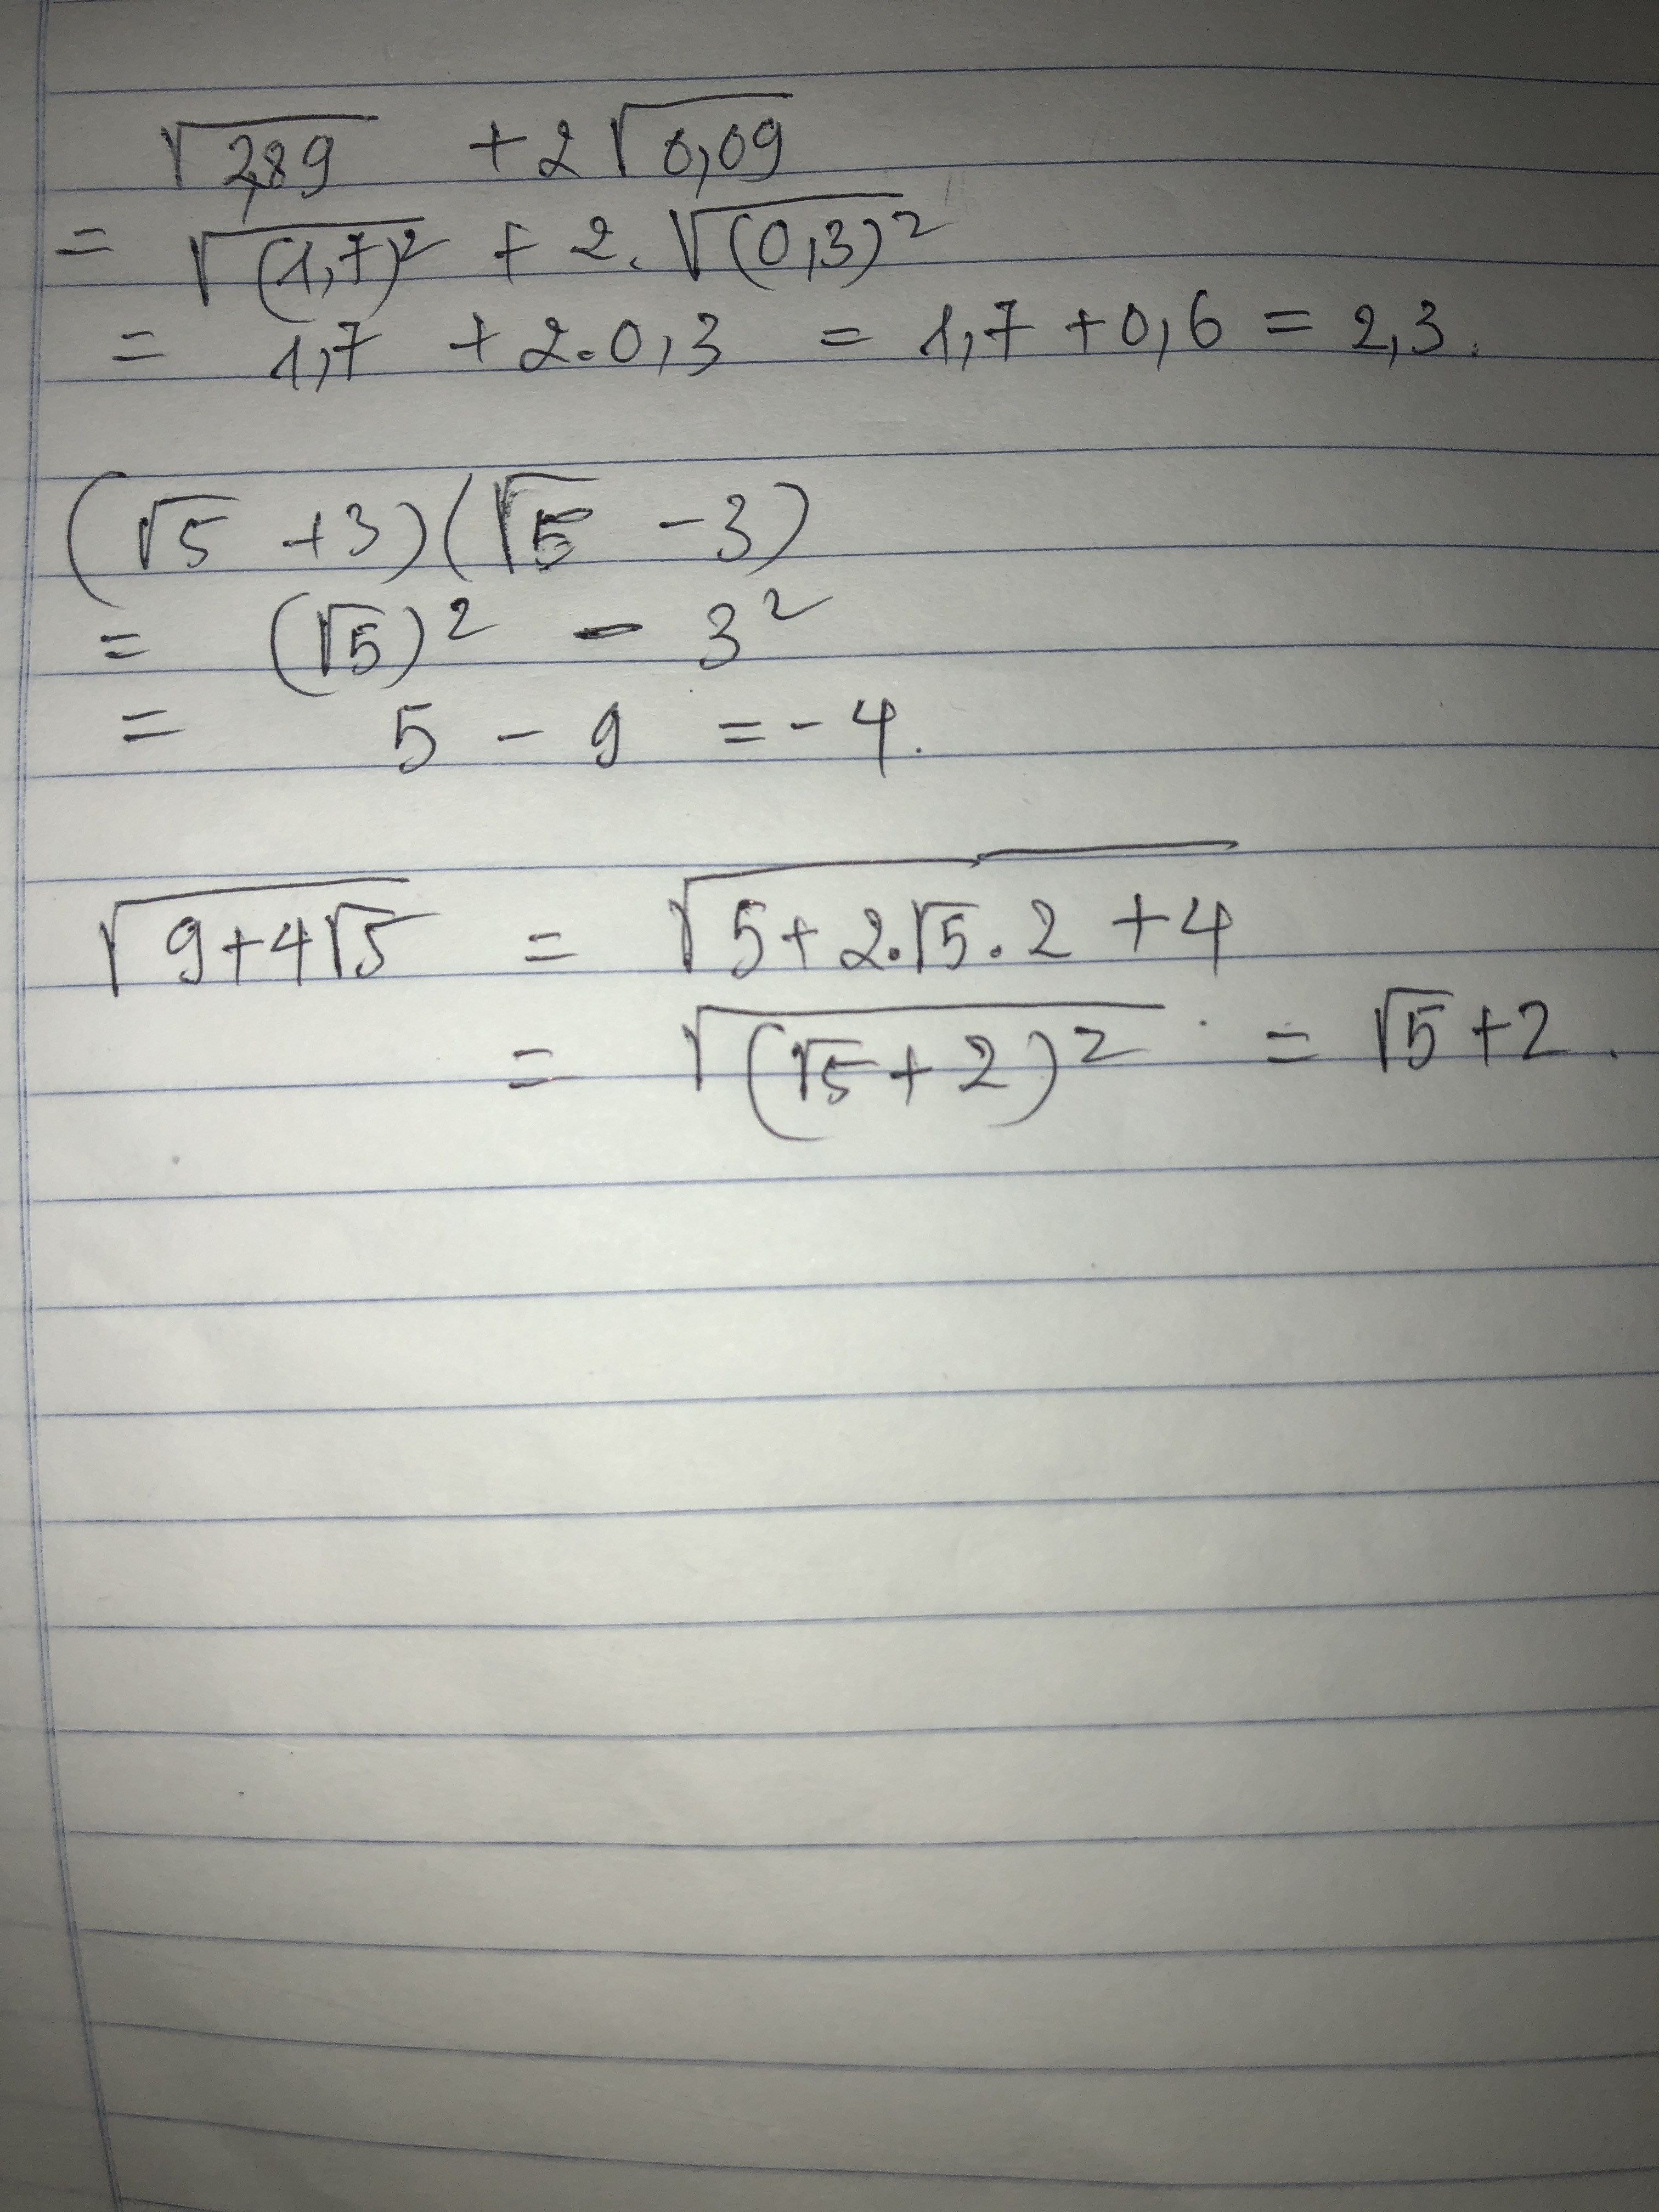 √2,89 + 2√0,09
= √(1,7)² + 2. √(0,3)²
= 1,7 + 2.0,3 = 1,7 + 0,6 = 2,3.
(√5 + 3)(√5 - 3)
= (√5)² - 3²
= 5 - 9 = - 4.
√9+4√5 = √5+2.√5.2 + 4
= √(√5+2)² = √5 + 2.